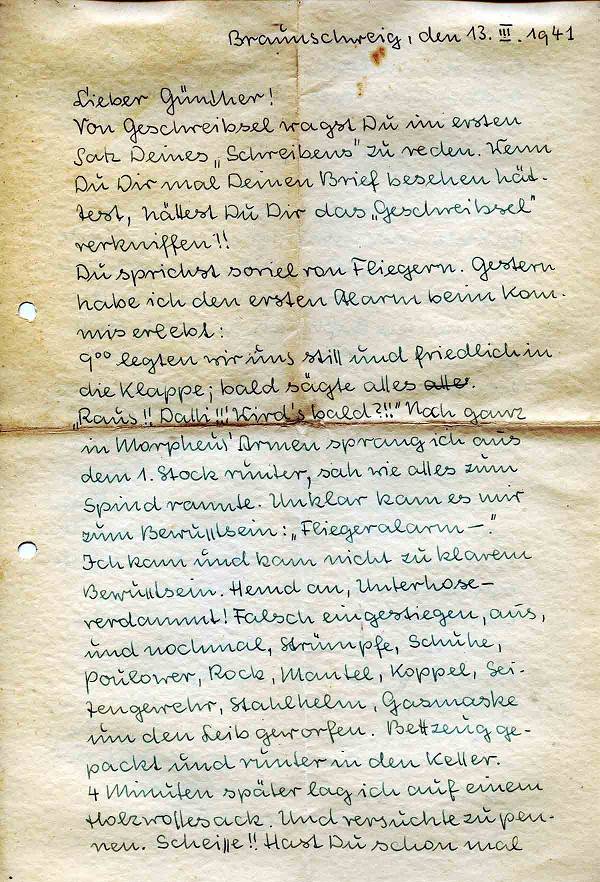 Braunschweig, den 13. III. 1941
Lieber Günther!
Von Geschreibsel wagst Du im ersten
Satz Deines „Schreibens" zu reden. Wenn
Du Dir mal Deinen Brief besehen hät-
test, hättest Du Dir das „Geschreibsel"
verkniffen!!
Du sprichst soviel von Fliegern. Gestern
habe ich den ersten Alarm beim Kom-
mis erlebt:
9⁰⁰ legten wir uns still und friedlich in
die Klappe; bald sägte alles alles.
„Raus!! Dalli!!! Wird's bald?!!" Noch ganz
in Morpheus' Armen sprang ich aus
dem 1. Stock runter, sah wie alles zum
Spind rannte. Unklar kam es mir
zum Bewußtsein: „Fliegeralarm –."
Ich kam und kam nicht zu klarem
Bewußtsein. Hemd an, Unterhose –
verdammt! Falsch eingestiegen, aus,
und nochmal, Strümpfe, Schuhe,
Poulower, Rock, Mantel, Koppel, Sei-
tengewehr, Stahlhelm, Gasmaske
um den Leib geworfen. Bettzeug ge-
packt und runter in den Keller.
4 Minuten später lag ich auf einem
Holzwollesack. Und versuchte zu pen-
nen. Scheiße!! Hast Du schon mal